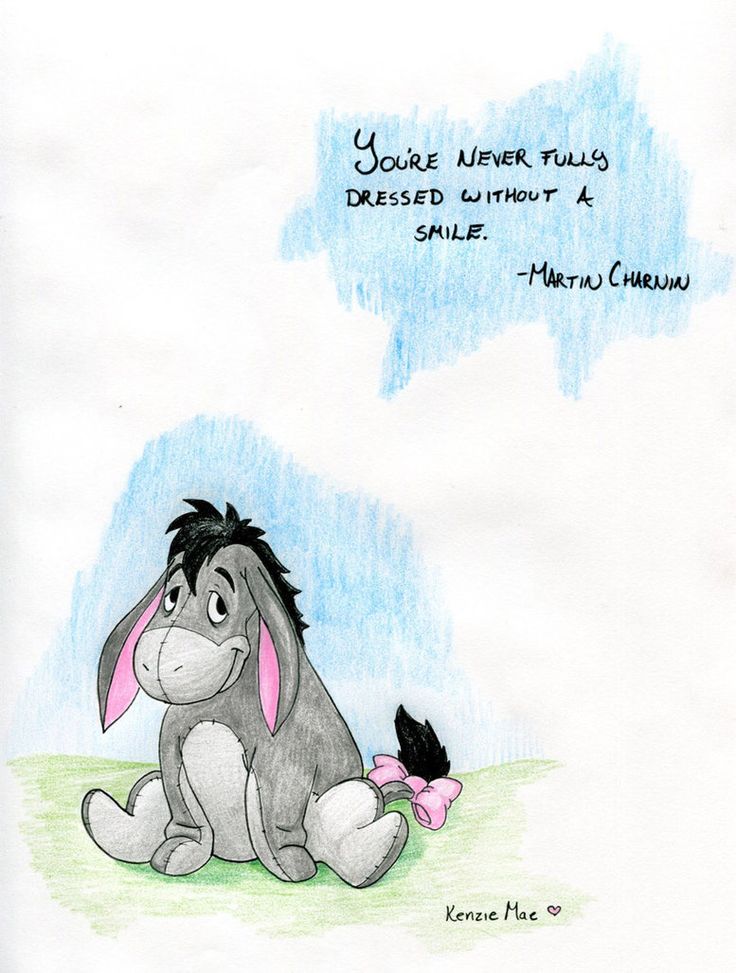 You're never fully
dressed without a
smile.
-Martin Charnin
Kenzie Mae ♡